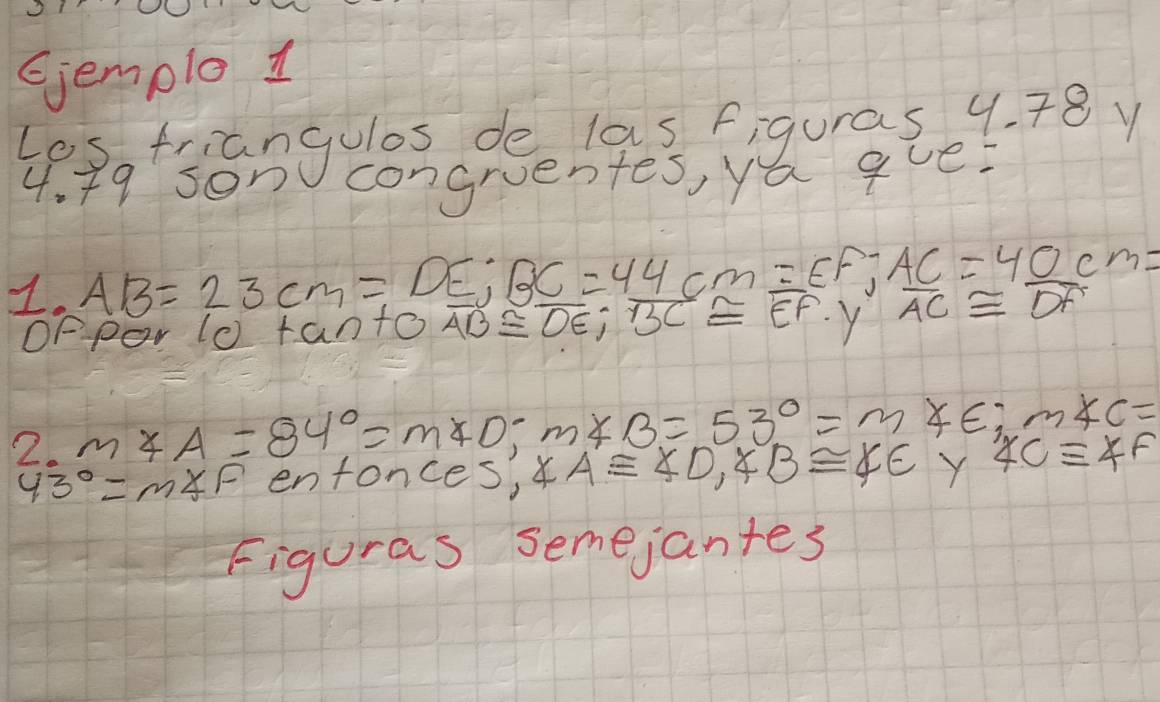 Ejemplo 1
Los triangulos de las figuras 4.78 y
4.79 son congruentes, ya que:
1. AB = 23 cm = DE; BC = 44 cm = EF; AC = 40 cm =
DF por lo tanto A̅B̅ ≅ D̅E̅; B̅C̅ ≅ E̅F̅. y A̅C̅ ≅ D̅F̅
2. m∡A = 84° = m∡D; m∡B = 53° = m∡E; m∡C =
43° = m∡F entonces, ∡A ≅ ∡D, ∡B ≅ ∡E y ∡C ≅ ∡F
Figuras semejantes